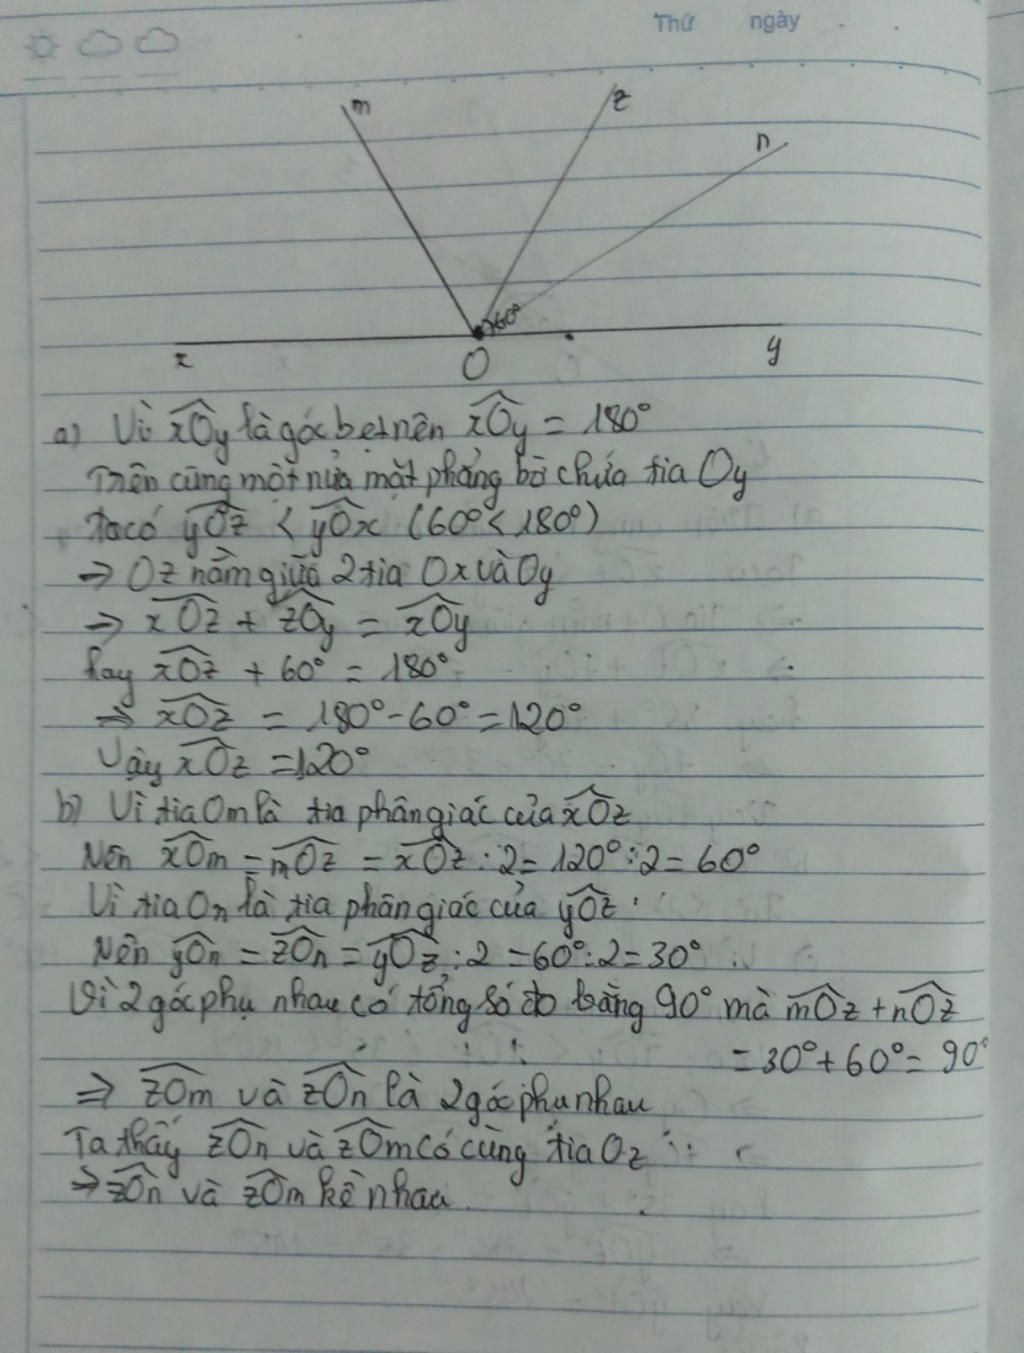 Thứ ngày
m
z
n
60°
x
O
y
a) Vì xÔy là góc bẹt nên xÔy = 180°
Trên cùng một nửa mặt phẳng bờ chứa tia Oy
ta có yÔz < yÔx (60° < 180°)
⇒ Oz nằm giữa 2 tia Ox và Oy
⇒ xÔz + zÔy = xÔy
hay xÔz + 60° = 180°
⇒ xÔz = 180° - 60° = 120°
Vậy xÔz = 120°
b) Vì tia Om là tia phân giác của xÔz
Nên xÔm = mÔz = xÔz : 2 = 120° : 2 = 60°
Vì tia On là tia phân giác của yÔz
Nên yÔn = zÔn = yÔz : 2 = 60° : 2 = 30°
Vì 2 góc phụ nhau có tổng số đo bằng 90° mà mÔz + nÔz
= 30° + 60° = 90°
⇒ zÔm và zÔn là 2 góc phụ nhau
Ta thấy zÔn và zÔm có cùng tia Oz
⇒ zÔn và zÔm kề nhau.